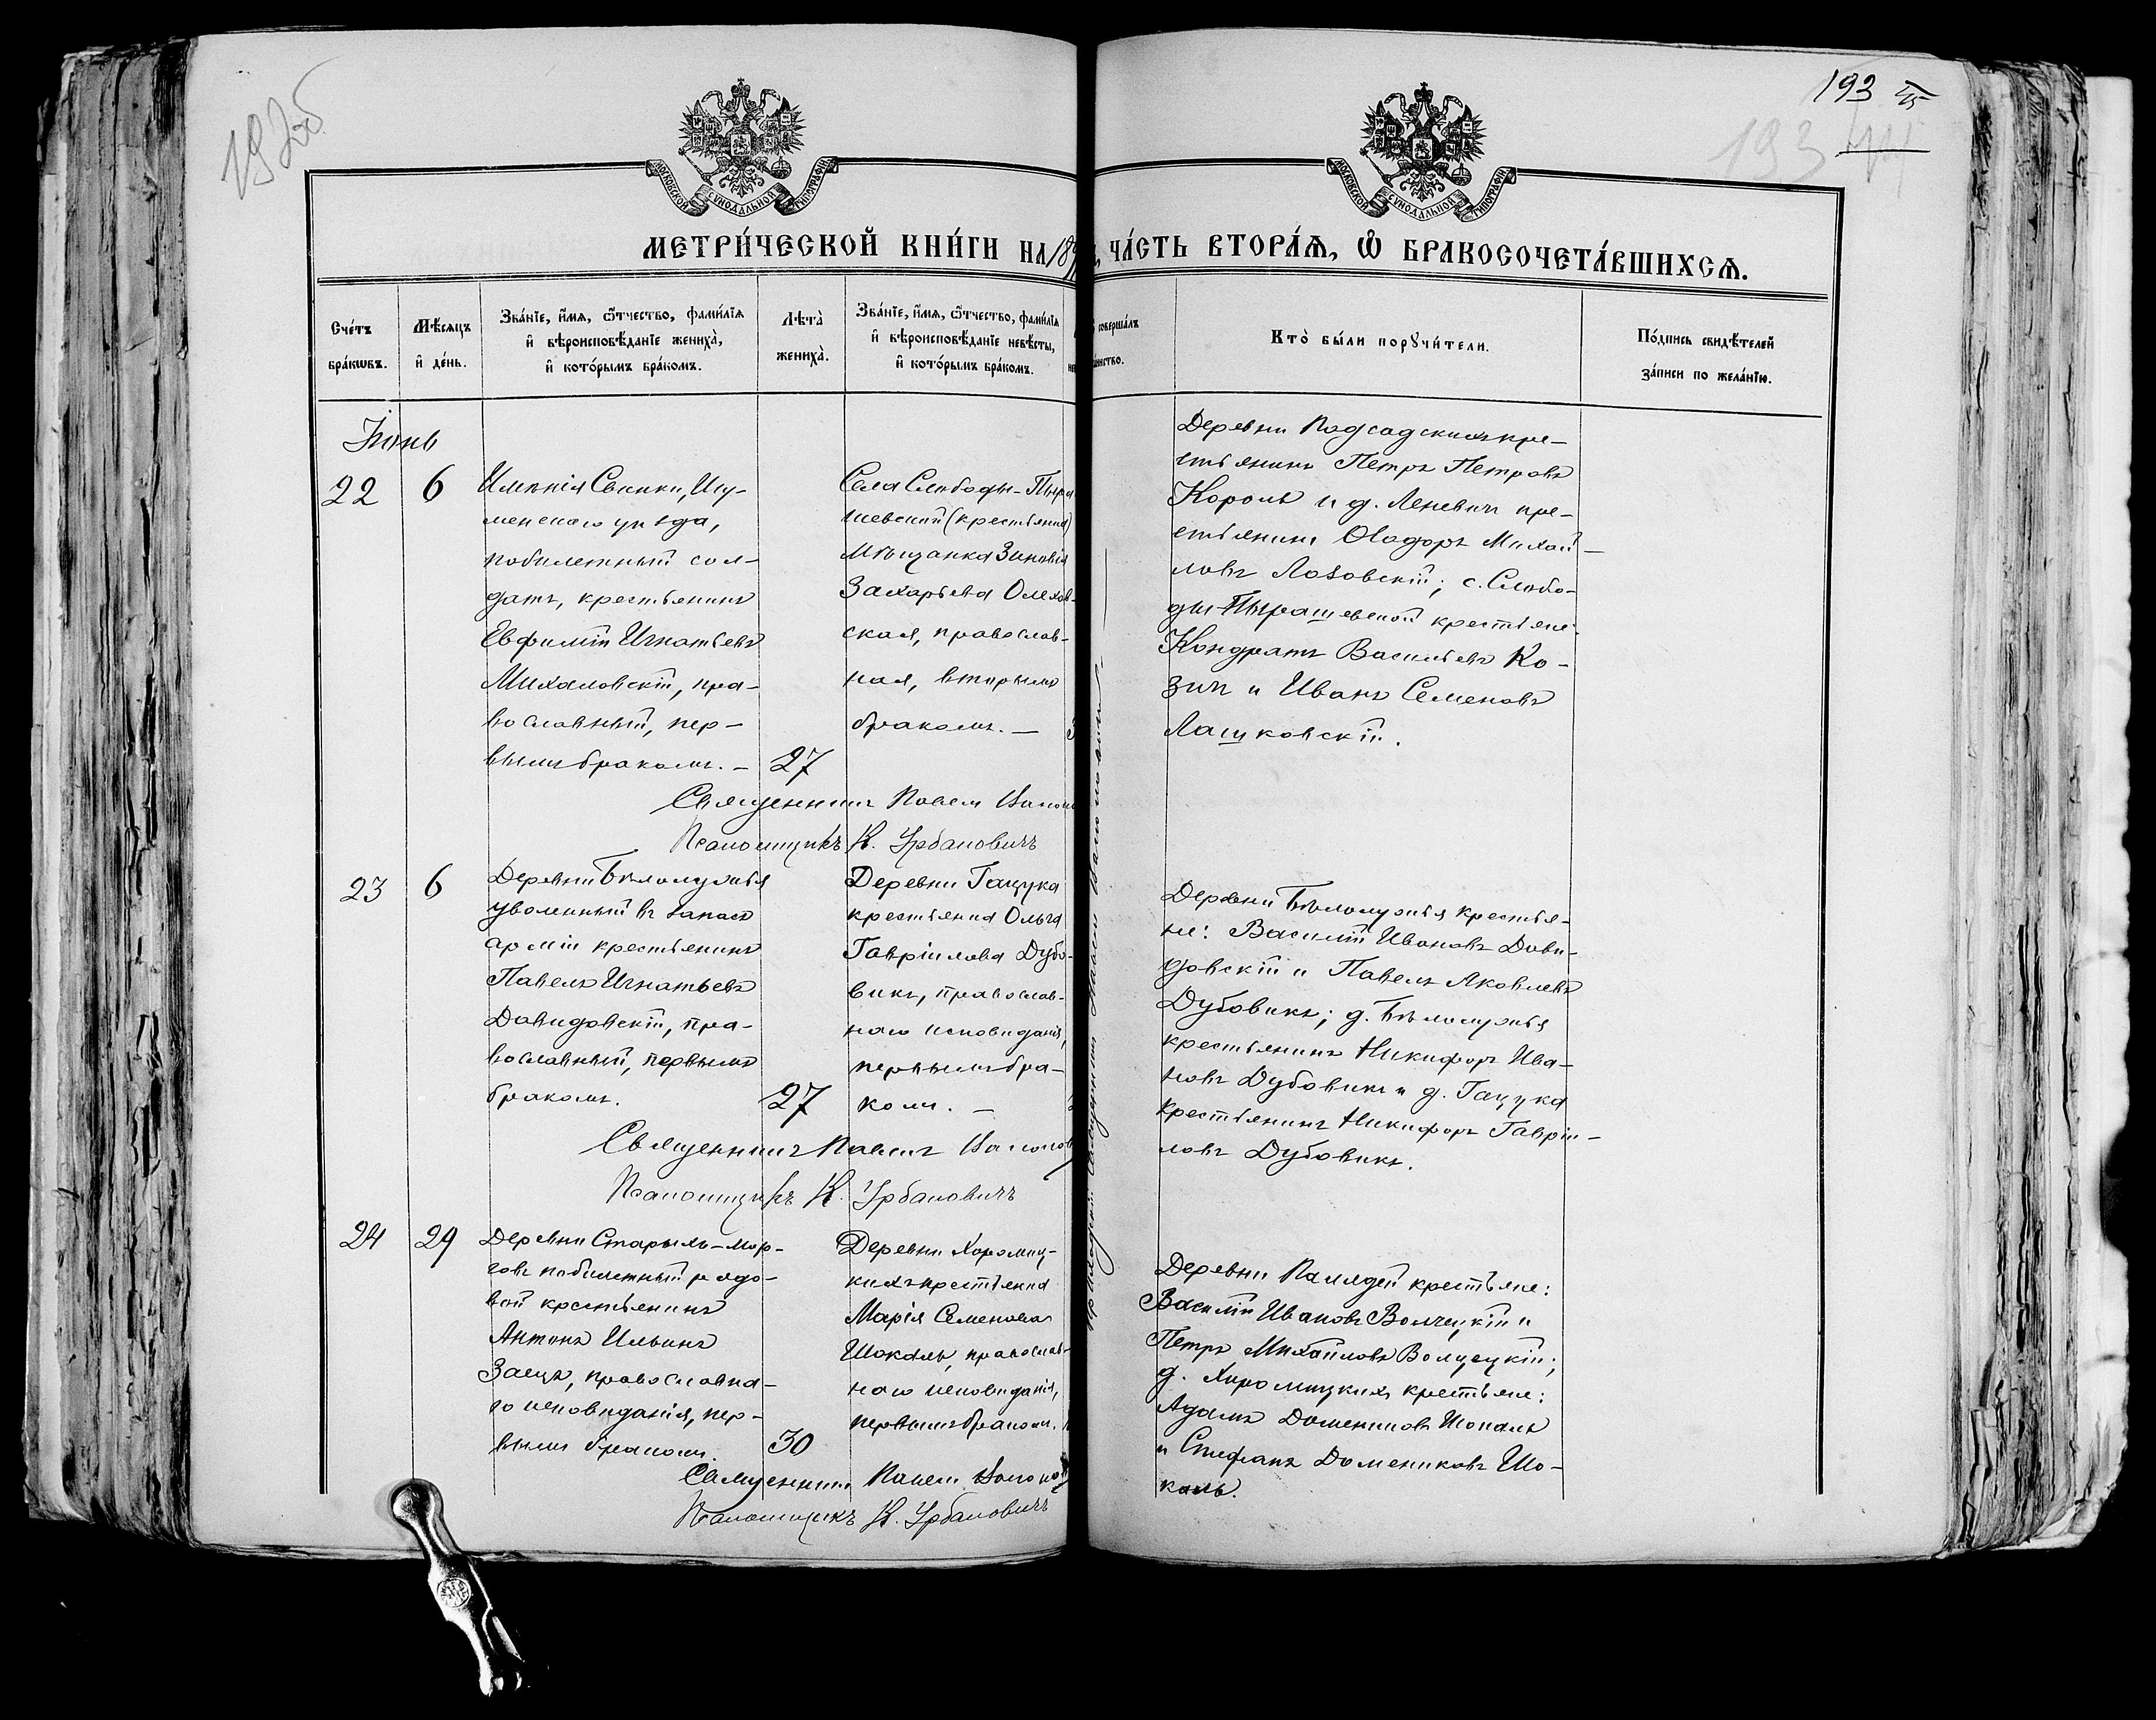 192об
193
193
МОСКОВСКОЙ СУНОДАЛЬНОЙ ТИПОГРАФІИ
МОСКОВСКОЙ СУНОДАЛЬНОЙ ТИПОГРАФІИ
МЕТРИ́ЧЕСКОЙ КНИ́ГИ НА 189
ЧА́СТЬ ВТОРА́Я, Ѡ БРАКОСОЧЕТА́ВШИХСЯ.
Сче́тъ бра́кѡвъ.
Мѣ́сяцъ и де́нь.
Зва́нїе, и́мя, ѻ́тчество, фами́лїя
и вѣроисповѣ́данїе жениха̀,
и кото́рымъ бра́комъ.
Лѣта̀ жениха̀.
Зва́нїе, и́мя, ѻ́тчество, фами́лїя
и вѣроисповѣ́данїе невѣ́сты,
и кото́рымъ бра́комъ.
соверша́лъ
Кто̀ бы́ли порꙋчи́тели.
По́дпись свидѣ́телей
за́писи по жела́нїю.
Іюнь
22
6
Имѣнія Свинки, Игу-
менскаго уѣзда,
побилетный сол-
датъ, крестьянинъ
Евфимій Игнатьевъ
Михаловскій, пра-
вославный, пер-
вымъ бракомъ. —
27
Села Слободы-Пыра
шевской (крестьянка)
Мѣщанка Зиновія
Захарьева Олехов-
ская, православ-
ная, вторымъ
бракомъ. —
Деревни Подсадскихъ кре-
стьянинъ Петръ Петровъ
Король и д. Леневичи кре-
стьянинъ Ѳеодоръ Михай-
ловъ Лозовскій; с. Слобо-
ды-Пырашевской крестьяне:
Кондратъ Васильевъ Ко-
зичъ и Иванъ Семеновъ
Лашковскій.
Священникъ Павелъ
Псаломщикъ К. Урбановичъ
23
6
Деревни Бѣломужья
уволенный въ запасъ
арміи крестьянинъ
Павелъ Игнатьевъ
Давидовскій, пра-
вославный, первымъ
бракомъ.
27
Деревни Гацука
крестьянка Ольга
Гавріилова Дубо-
викъ, православ-
наго исповѣданія,
первымъ бра-
комъ. —
Деревни Бѣломужья крестья-
не: Василій Ивановъ Дави-
довскій и Павелъ Яковлевъ
Дубовикъ; д. Бѣломужья
крестьянинъ Никифоръ Ива-
новъ Дубовикъ и д. Гацука
крестьянинъ Никифоръ Гавріи-
ловъ Дубовикъ.
Священникъ Павелъ
Псаломщикъ К. Урбановичъ
24
29
Деревни Старыхъ-Мор-
говъ побилетный рядо-
вой крестьянинъ
Антонъ Ильинъ
Заецъ, православна-
го исповѣданія, пер-
вымъ бракомъ.
30
Деревни Хоромиц-
кихъ крестьянка
Марія Семенова
Шокаль, православ-
наго исповѣданія,
первымъ бракомъ.
Деревни крестьяне:
Василій Ивановъ и
Петръ Михайловъ
д. Хоромицкихъ крестьяне:
Адамъ Домениковъ Шокаль
и Стефанъ Домениковъ Шо-
каль.
Священникъ Павелъ
Псаломщикъ К. Урбановичъ